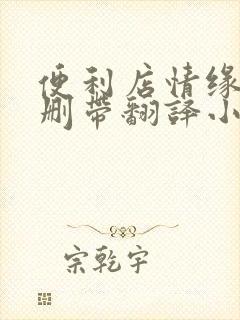 便利店情缘
删带翻译小
宗乾宇